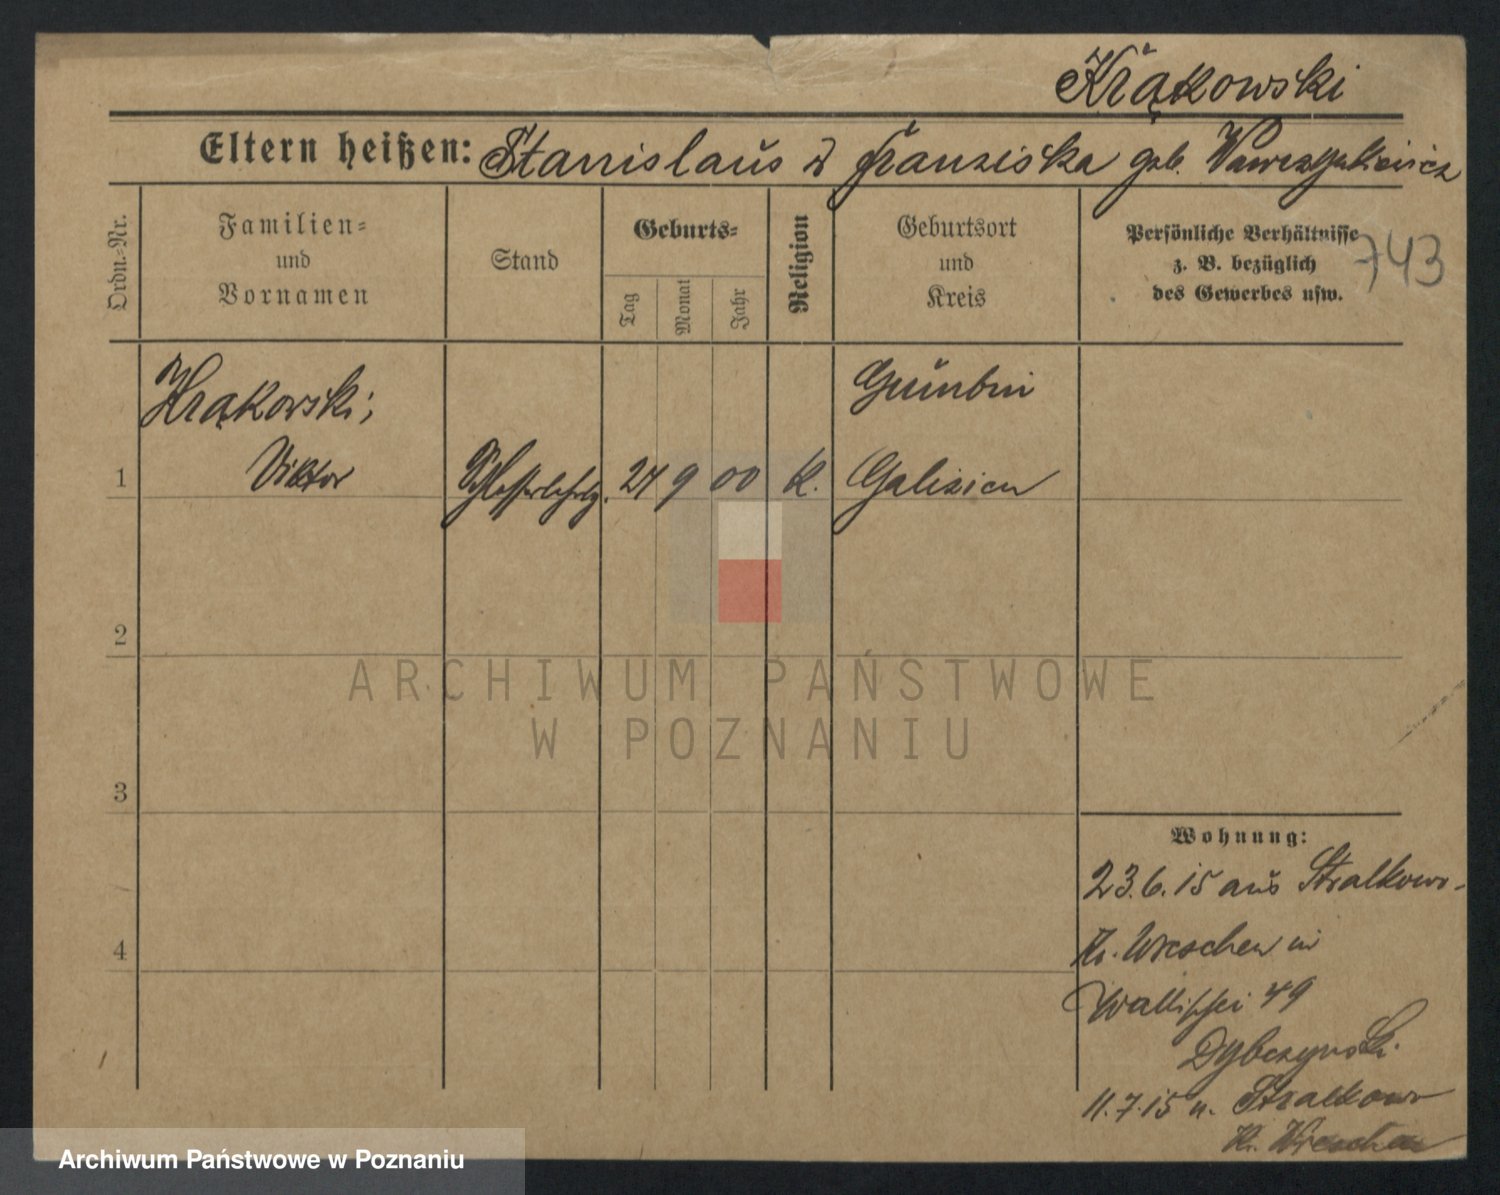 Krąkowski
Eltern heißen: Stanislaus u Franziska geb.
743
Ordn.-Nr.
Familien-
und
Vornamen
Stand
Geburts-
Tag
Monat
Jahr
Religion
Geburtsort
und
Kreis
Persönliche Verhältnisse
z. B. bezüglich
des Gewerbes usw.
Krąkowski,
Viktor
1
Schlosserlehrlg. 24 9 00 K.
Galizien
2
3
4
ARCHIWUM PAŃSTWOWE
W POZNANIU
Wohnung:
23.6.15 aus Stralkowo
Kr. Wreschen in
Wallischei 49
Dybczynski
11.7.15 n. Stralkowo
Kr. Wreschen
Archiwum Państwowe w Poznaniu